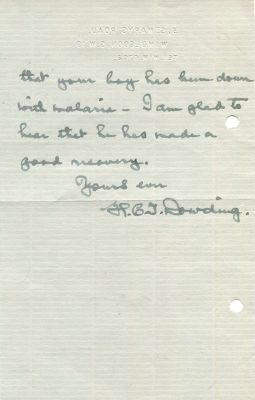 that your boy has been down
with malaria – I am glad to
hear that he has made a
good recovery.
Yours ever
H.C.T. Dowding.